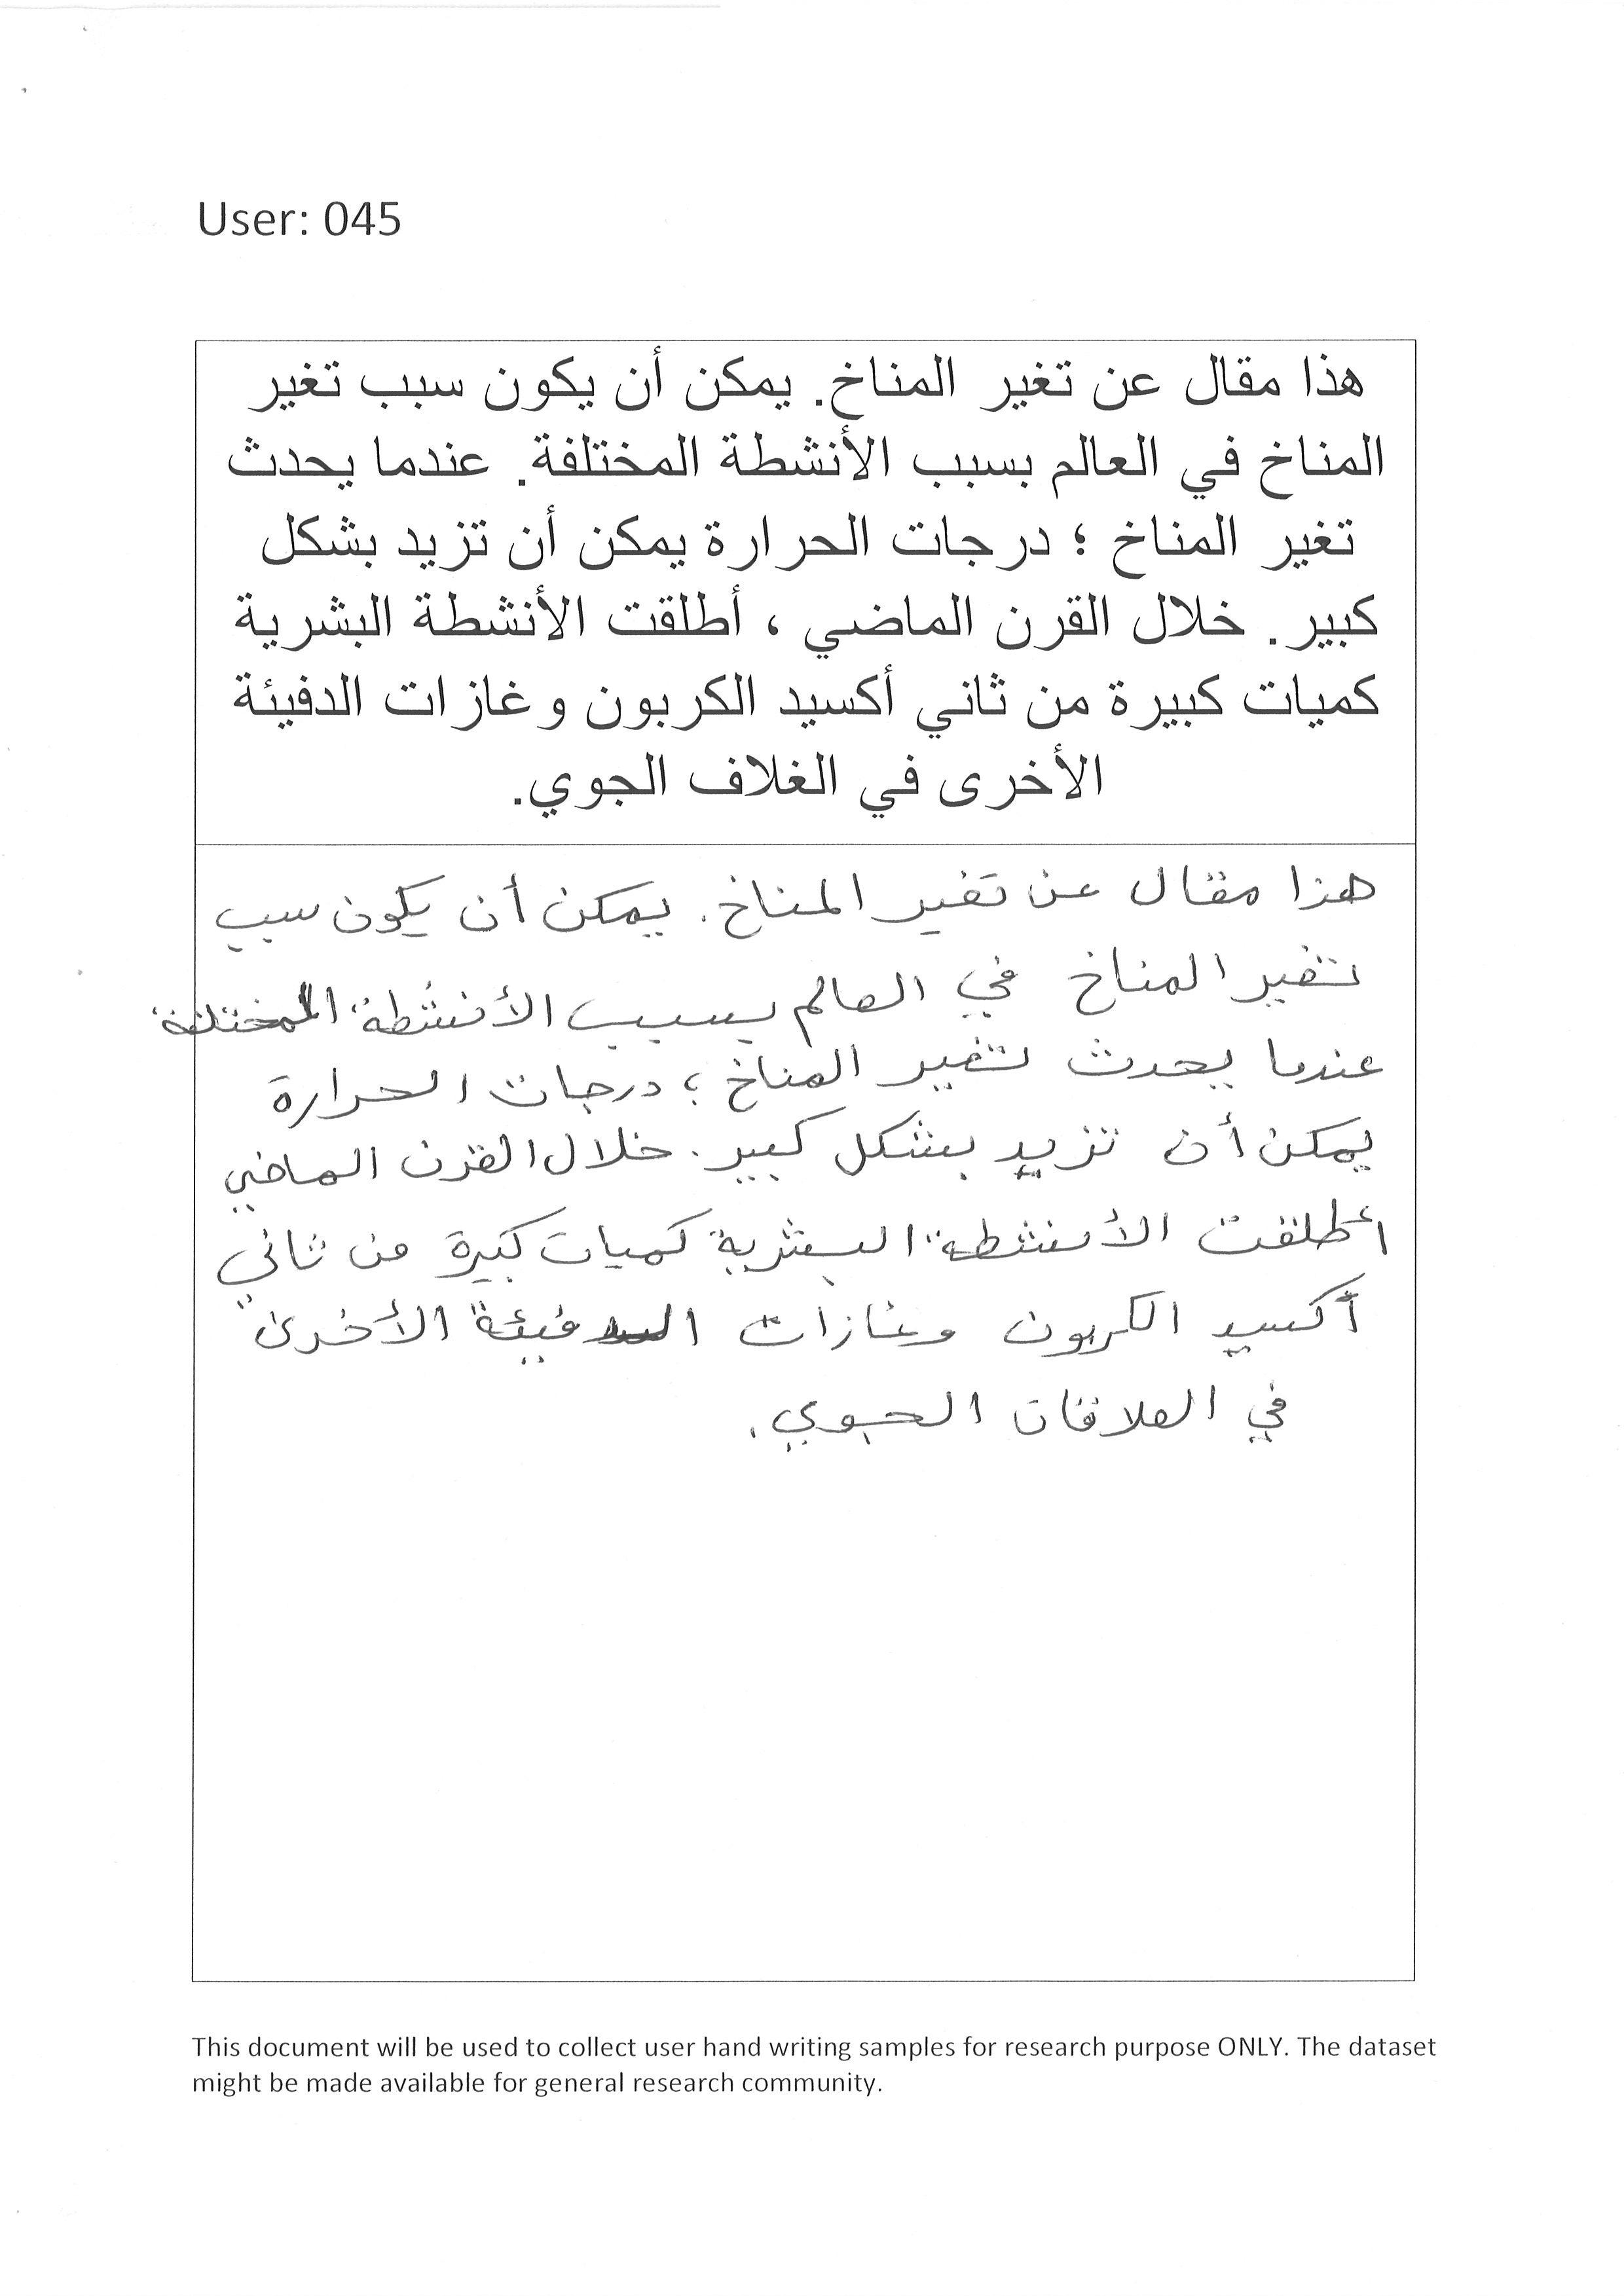 User: 045
هذا مقال عن تغير المناخ. يمكن أن يكون سبب تغير
المناخ في العالم بسبب الأنشطة المختلفة. عندما يحدث
تغير المناخ ؛ درجات الحرارة يمكن أن تزيد بشكل
كبير. خلال القرن الماضي ، أطلقت الأنشطة البشرية
كميات كبيرة من ثاني أكسيد الكربون وغازات الدفيئة
الأخرى في الغلاف الجوي.
هذا مقال عن تغير المناخ. يمكن أن يكون سبب
تغير المناخ في العالم بسبب الأنشطة المختلفة
عندما يحدث تغير المناخ ؛ درجات الحرارة
يمكن أن تزيد بشكل كبير. خلال القرن الماضي
أطلقت الأنشطة البشرية كميات كبيرة من ثاني
أكسيد الكربون وغازات الدفيئة الأخرى
في الغلاقات الجوي.
This document will be used to collect user hand writing samples for research purpose ONLY. The dataset
might be made available for general research community.